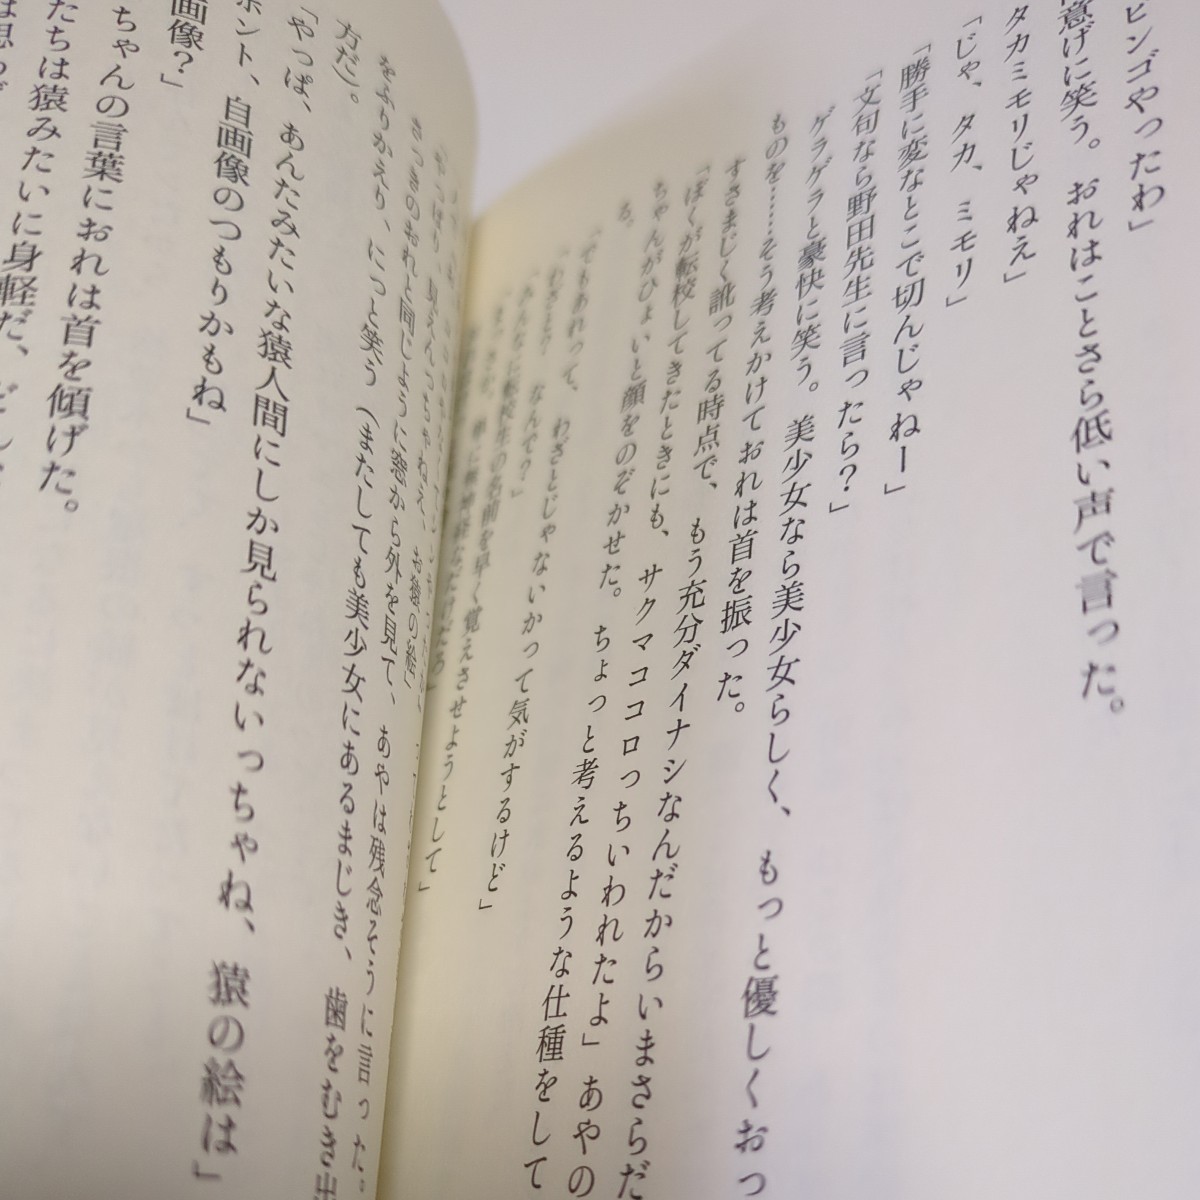 ビンゴやったわ」
意げに笑う。おれはことさら低い声で言った。
タカミモリじゃねえ」
「じゃ、タカ、ミモリ」
「勝手に変なとこで切んじゃねー」
「文句なら野田先生に言ったら?」
ゲラゲラと豪快に笑う。美少女なら美少女らしく、もっと優しくおっ
ものを……そう考えかけておれは首を振った。
すさまじく訛ってる時点で、もう充分ダイナシなんだからいまさらだ
「ぼくが転校してきたときにも、サクマココロっちいわれたよ」あやの
ちゃんがひょいと顔をのぞかせた。ちょっと考えるような仕種をして
る。
「でもあれって、わざとじゃないかって気がするけど」
「わざと? なんで?」
「みんなに転校生の名前を早く覚えさせようとして」
「やっぱり、見えんっちゃねえ、お猿の絵」
さっきのおれと同じように窓から外を見て、あやは残念そうに言った。
をふりかえり、にっと笑う(またしても美少女にあるまじき、歯をむき出
方だ)。
「やっぱ、あんたみたいな猿人間にしか見られないっちゃね、猿の絵は」
ホント、自画像のつもりかもね」
画像?」
ちゃんの言葉におれは首を傾げた。
たちは猿みたいに身軽だ、